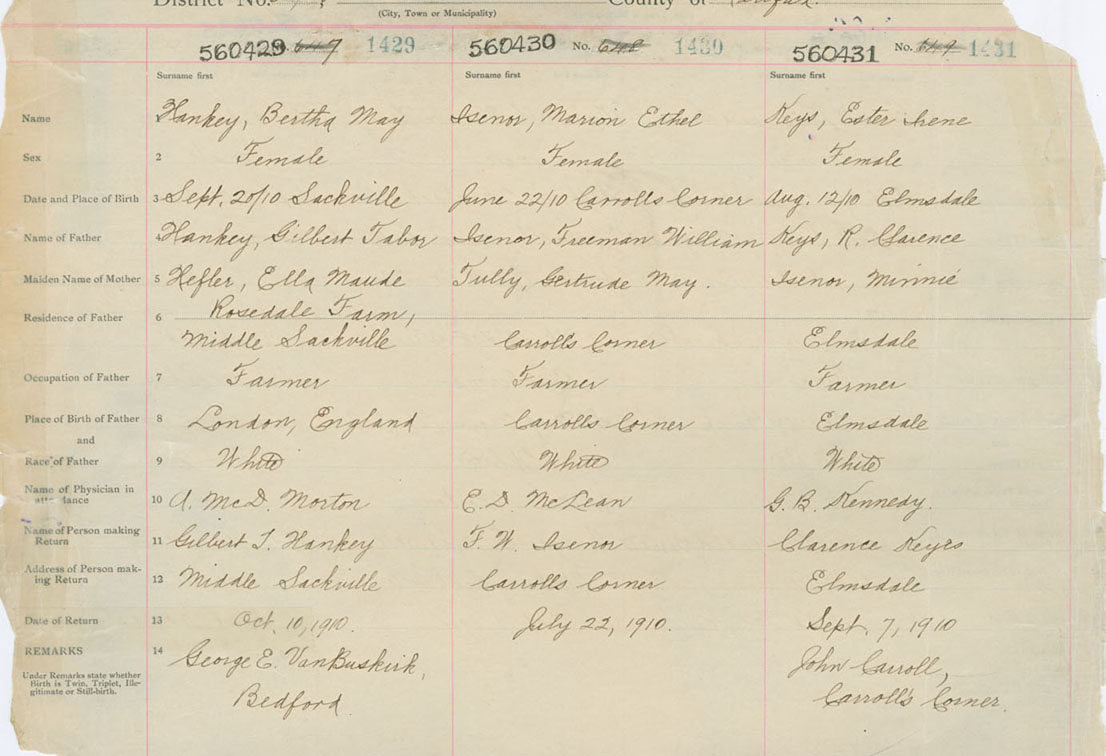 District No.
County of Halifax.
(City, Town or Municipality)
560429 No. 647 1429 560430 No. 648 1430 560431 No. 649 1431
Surname first Surname first Surname first
Name 1 Hankey, Bertha May Isenor, Marion Ethel Keys, Ester Irene
Sex 2 Female Female Female
Date and Place of Birth 3 Sept. 20/10 Sackville June 22/10 Carrolls Corner Aug. 12/10 Elmsdale
Name of Father 4 Hankey, Gilbert Tabor Isenor, Freeman William Keys, R. Clarence
Maiden Name of Mother 5 Hefler, Ella Maude Tully, Gertrude May. Isenor, Minnie
Residence of Father 6 Rosedale Farm,
Middle Sackville Carroll's Corner Elmsdale
Occupation of Father 7 Farmer Farmer Farmer
Place of Birth of Father 8 London, England Carrolls Corner Elmsdale
and
Race of Father 9 White White White
Name of Physician in
attendance 10 A. McD. Morton E. D. McLean G. B. Kennedy.
Name of Person making
Return 11 Gilbert T. Hankey F. W. Isenor Clarence Keyes
Address of Person mak-
ing Return 12 Middle Sackville Carrolls Corner Elmsdale
Date of Return 13 Oct. 10, 1910. July 22, 1910. Sept. 7, 1910
REMARKS 14 George E. VanBuskirk, John Carroll,
Under Remarks state whether
Birth is Twin, Triplet, Ille-
gitimate or Still-birth.
Bedford. Carroll's Corner.